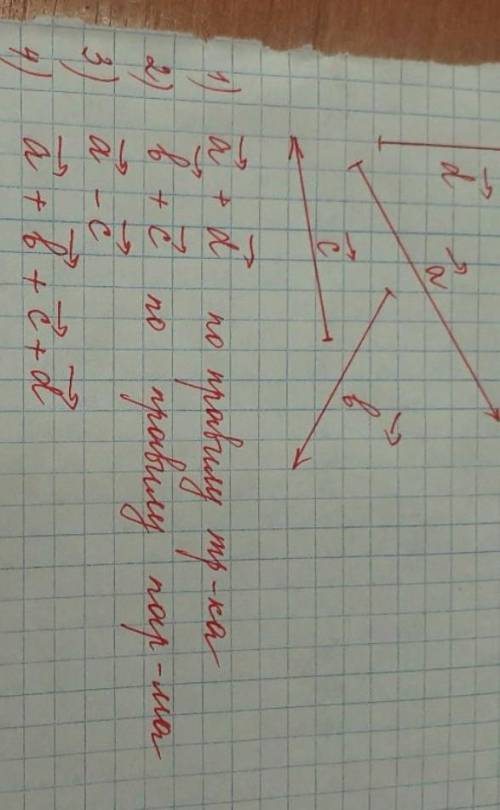 d⃗
a⃗
c⃗
b⃗
1) a⃗ + d⃗ по правилу тр-ка
2) b⃗ + c⃗ по правилу пар-ма
3) a⃗ - c⃗
4) a⃗ + b⃗ + c⃗ + d⃗